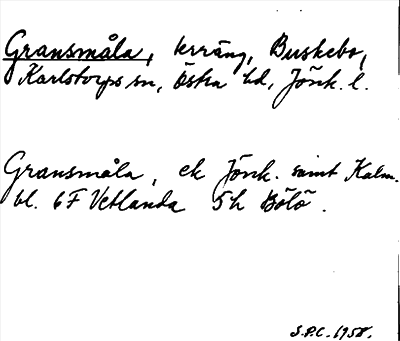 Gransmåla, terräng, Buskebo,
Karlstorps sn, Östra hd, Jönk. l.
Gransmåla, ek Jönk. samt Kalm.
bl. 6F Vetlanda 5h Bölö.
S.P.C. 1958.